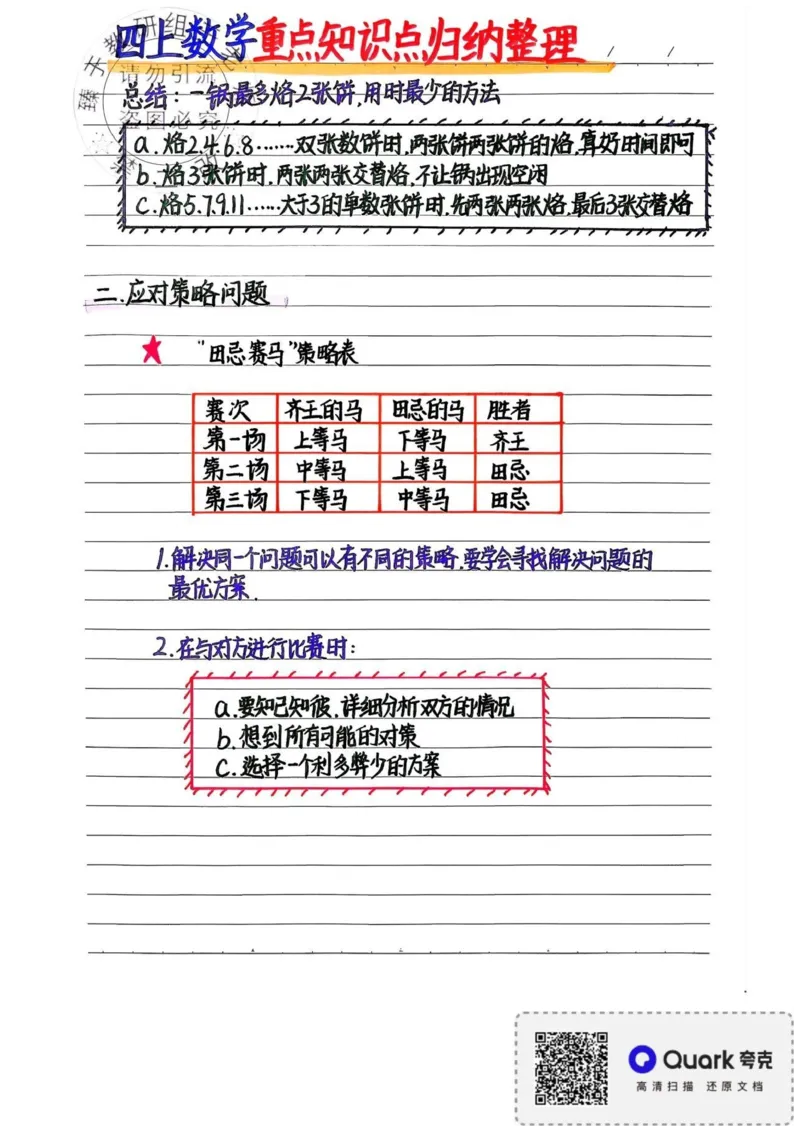 四上数学重点知识点归纳整理
请勿引流
盗图必究
总结：一锅最多烙2张饼,用时最少的方法
a.烙2.4.6.8……双张数饼时,两张饼两张饼的烙,算好时间即可
b.烙3张饼时,两张两张交替烙,不让锅出现空闲
c.烙5.7.9.11……大于3的单数张饼时,先两张两张烙,最后3张交替烙
二.应对策略问题
“田忌赛马”策略表
赛次 齐王的马 田忌的马 胜者
第一场 上等马 下等马 齐王
第二场 中等马 上等马 田忌
第三场 下等马 中等马 田忌
1.解决同一个问题可以有不同的策略,要学会寻找解决问题的
最优方案.
2.在与对方进行比赛时:
a.要知己知彼,详细分析双方的情况
b.想到所有可能的对策
c.选择一个利多弊少的方案
Quark夸克
高清扫描 还原文档